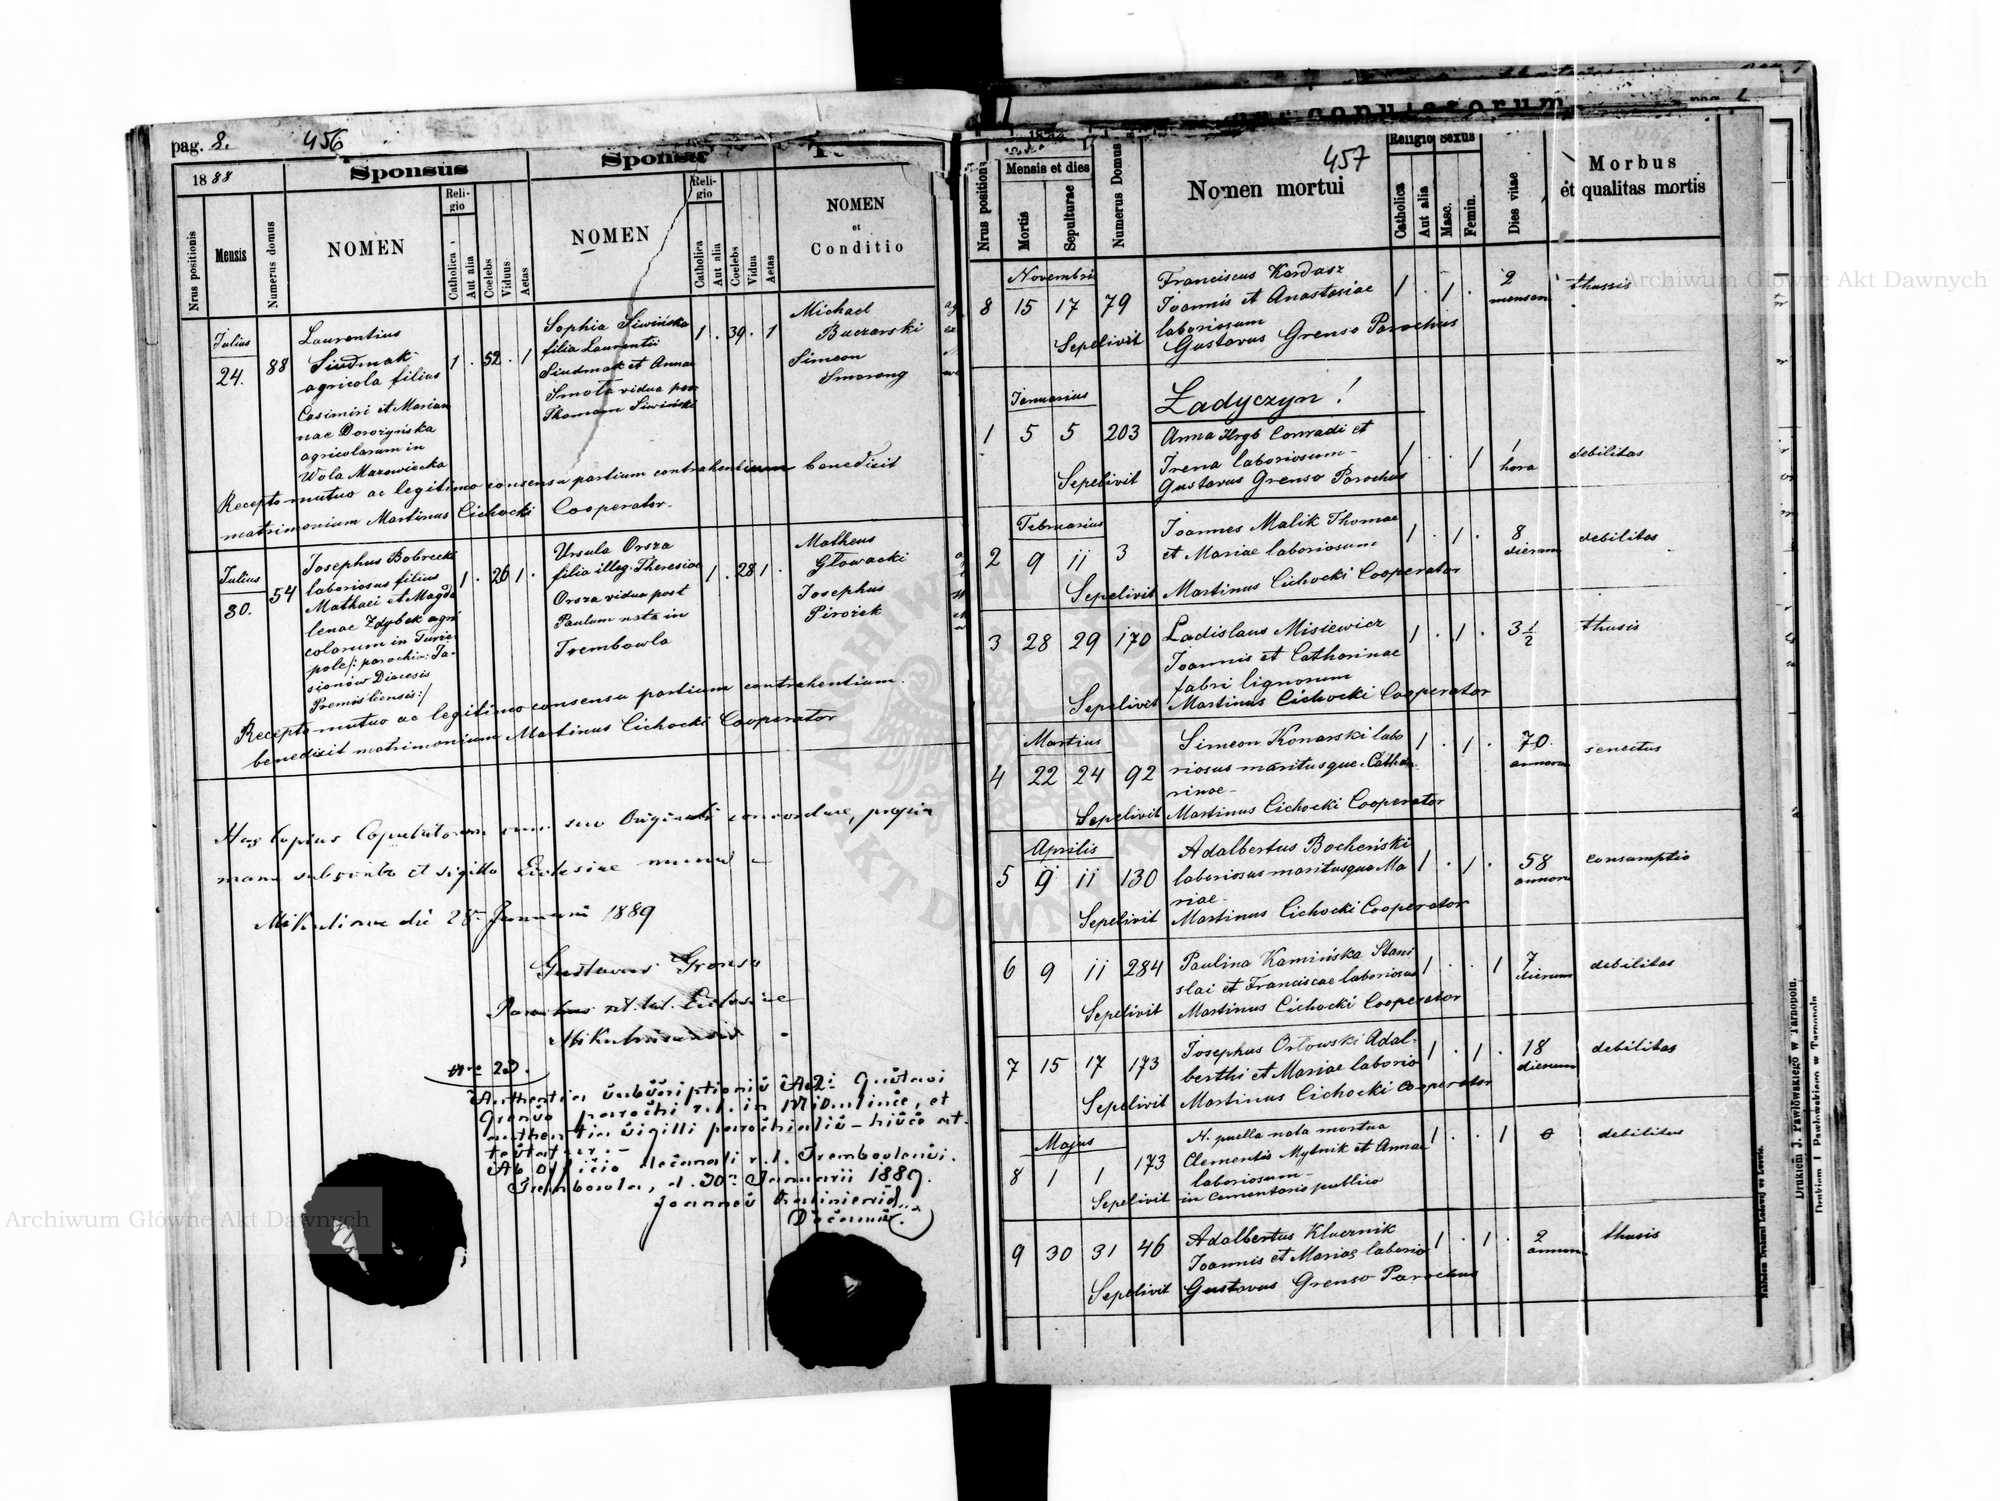 pag. 2.
456
Sponsus
1888
Nrus positionis
Mensis
Numerus domus
NOMEN
Religio
Catholica
Aut alia
Coelebs
Viduus
Aetas
NOMEN
Religio
Catholica
Aut alia
Coelebs
Vidua
Aetas
NOMEN
et
Conditio
Julius
24.
88
Laurentius
Siudmak
agricola filius
Casimiri et Marian
nae Dorożyńska
agricolarum in
Wola Mazowiecka
1 . 52 . 1
Sophia Siwińska
filia Laurentii
Siudmak et Annae
Smota vidua post
Thomam Siwiński
1 . 39 . 1
Michael
Buczarski
Simeon
Smorong
Recepto mutuo ac legitimo consensu partium contrahentium benedixit
matrimonium Martinus Cichocki Cooperator
Julius
30.
54
Josephus Bobrecki
laboriosus filius
Mathaei et Magda
lenae Zdybek agri
colarum in Turze
pole /: parochiae: Ja-
sionów Diocesis
Premisliensis :/
1 . 26 1 .
Ursula Orsza
filia illeg. Theresiae
Orsza vidua post
Paulum nata in
Trembowla
1 . 28 1 .
Matheus
Głowacki
Josephus
Pirożek
Recepto mutuo ac legitimo consensu partium contrahentium
benedixit matrimonium Martinus Cichocki Cooperator
Has copias Copulatorum cum suo Originali concordare, propria
manu subscripto et sigillo Ecclesiae munio
Mikulince die 28 Januarii 1889
Gustavus Grenso
Parochus rit. lat. Ecclesiae
Mikulincensis
Nro 23.
Authentiam subscriptionis Adi Gustavi
Grenso parochi r. l. in Mikulince, et
authentiam sigilli parochialis hisce at-
testatur.
Ab officio decanali r. l. Trembovlensi.
Trembowla, d. 30 Januarii 1889.
Joannes
Decanus
457
Nrus positionis
Mensis et dies
Mortis
Sepulturae
Numerus Domus
Nomen mortui
Religio
Catholica
Aut alia
Sexus
Masc.
Femin.
Dies vitae
Morbus
et qualitas mortis
Novembris
8 15 17 79
Franciscus Kardasz
Joannis et Anastasiae
laboriosum
1 . 1 .
2
mensum
thussis
Sepelivit Gustavus Grenso Parochus
Ładyczyn!
Januarius
1 5 5 203
Anna Hryb Conradi et
Irena laboriosum
1 . . 1
1
hora
debilitas
Sepelivit Gustavus Grenso Parochus
Februarius
2 9 11 3
Joannes Malik Thomae
et Mariae laboriosum
1 . 1 .
8
dierum
debilitas
Sepelivit Martinus Cichocki Cooperator
3 28 29 170
Ladislaus Misiewicz
Joannis et Catharinae
fabri lignorum
1 . 1 .
3 1/2
thusis
Sepelivit Martinus Cichocki Cooperator
Martius
4 22 24 92
Simeon Konarski labo
riosus maritusque Catha
rinae
1 . 1 .
70
annorum
senectus
Sepelivit Martinus Cichocki Cooperator
Aprilis
5 9 11 130
Adalbertus Bocheński
laboriosus maritusque Ma
riae
1 . 1 .
58
annorum
consumptio
Sepelivit Martinus Cichocki Cooperator
6 9 11 284
Paulina Kamińska Stani
slai et Franciscae laboriosus
1 . . 1
7
dierum
debilitas
Sepelivit Martinus Cichocki Cooperator
7 15 17 173
Josephus Orłowski Adal-
berthi et Mariae laborio
1 . 1 .
18
dierum
debilitas
Sepelivit Martinus Cichocki Cooperator
Majus
8 1 1 173
N. puella nata mortua
Clementis Mytnik et Annae
laboriosum
1 . . 1
0
debilitas
Sepelivit in cementario publico
9 30 31 46
Adalbertus Klucznik
Joannis et Mariae laborio
1 . 1 .
2
annorum
thusis
Sepelivit Gustavus Grenso Parochus
Drukiem J. Pawłowskiego w Tarnopolu.
Archiwum Główne Akt Dawnych
Archiwum Główne Akt Dawnych